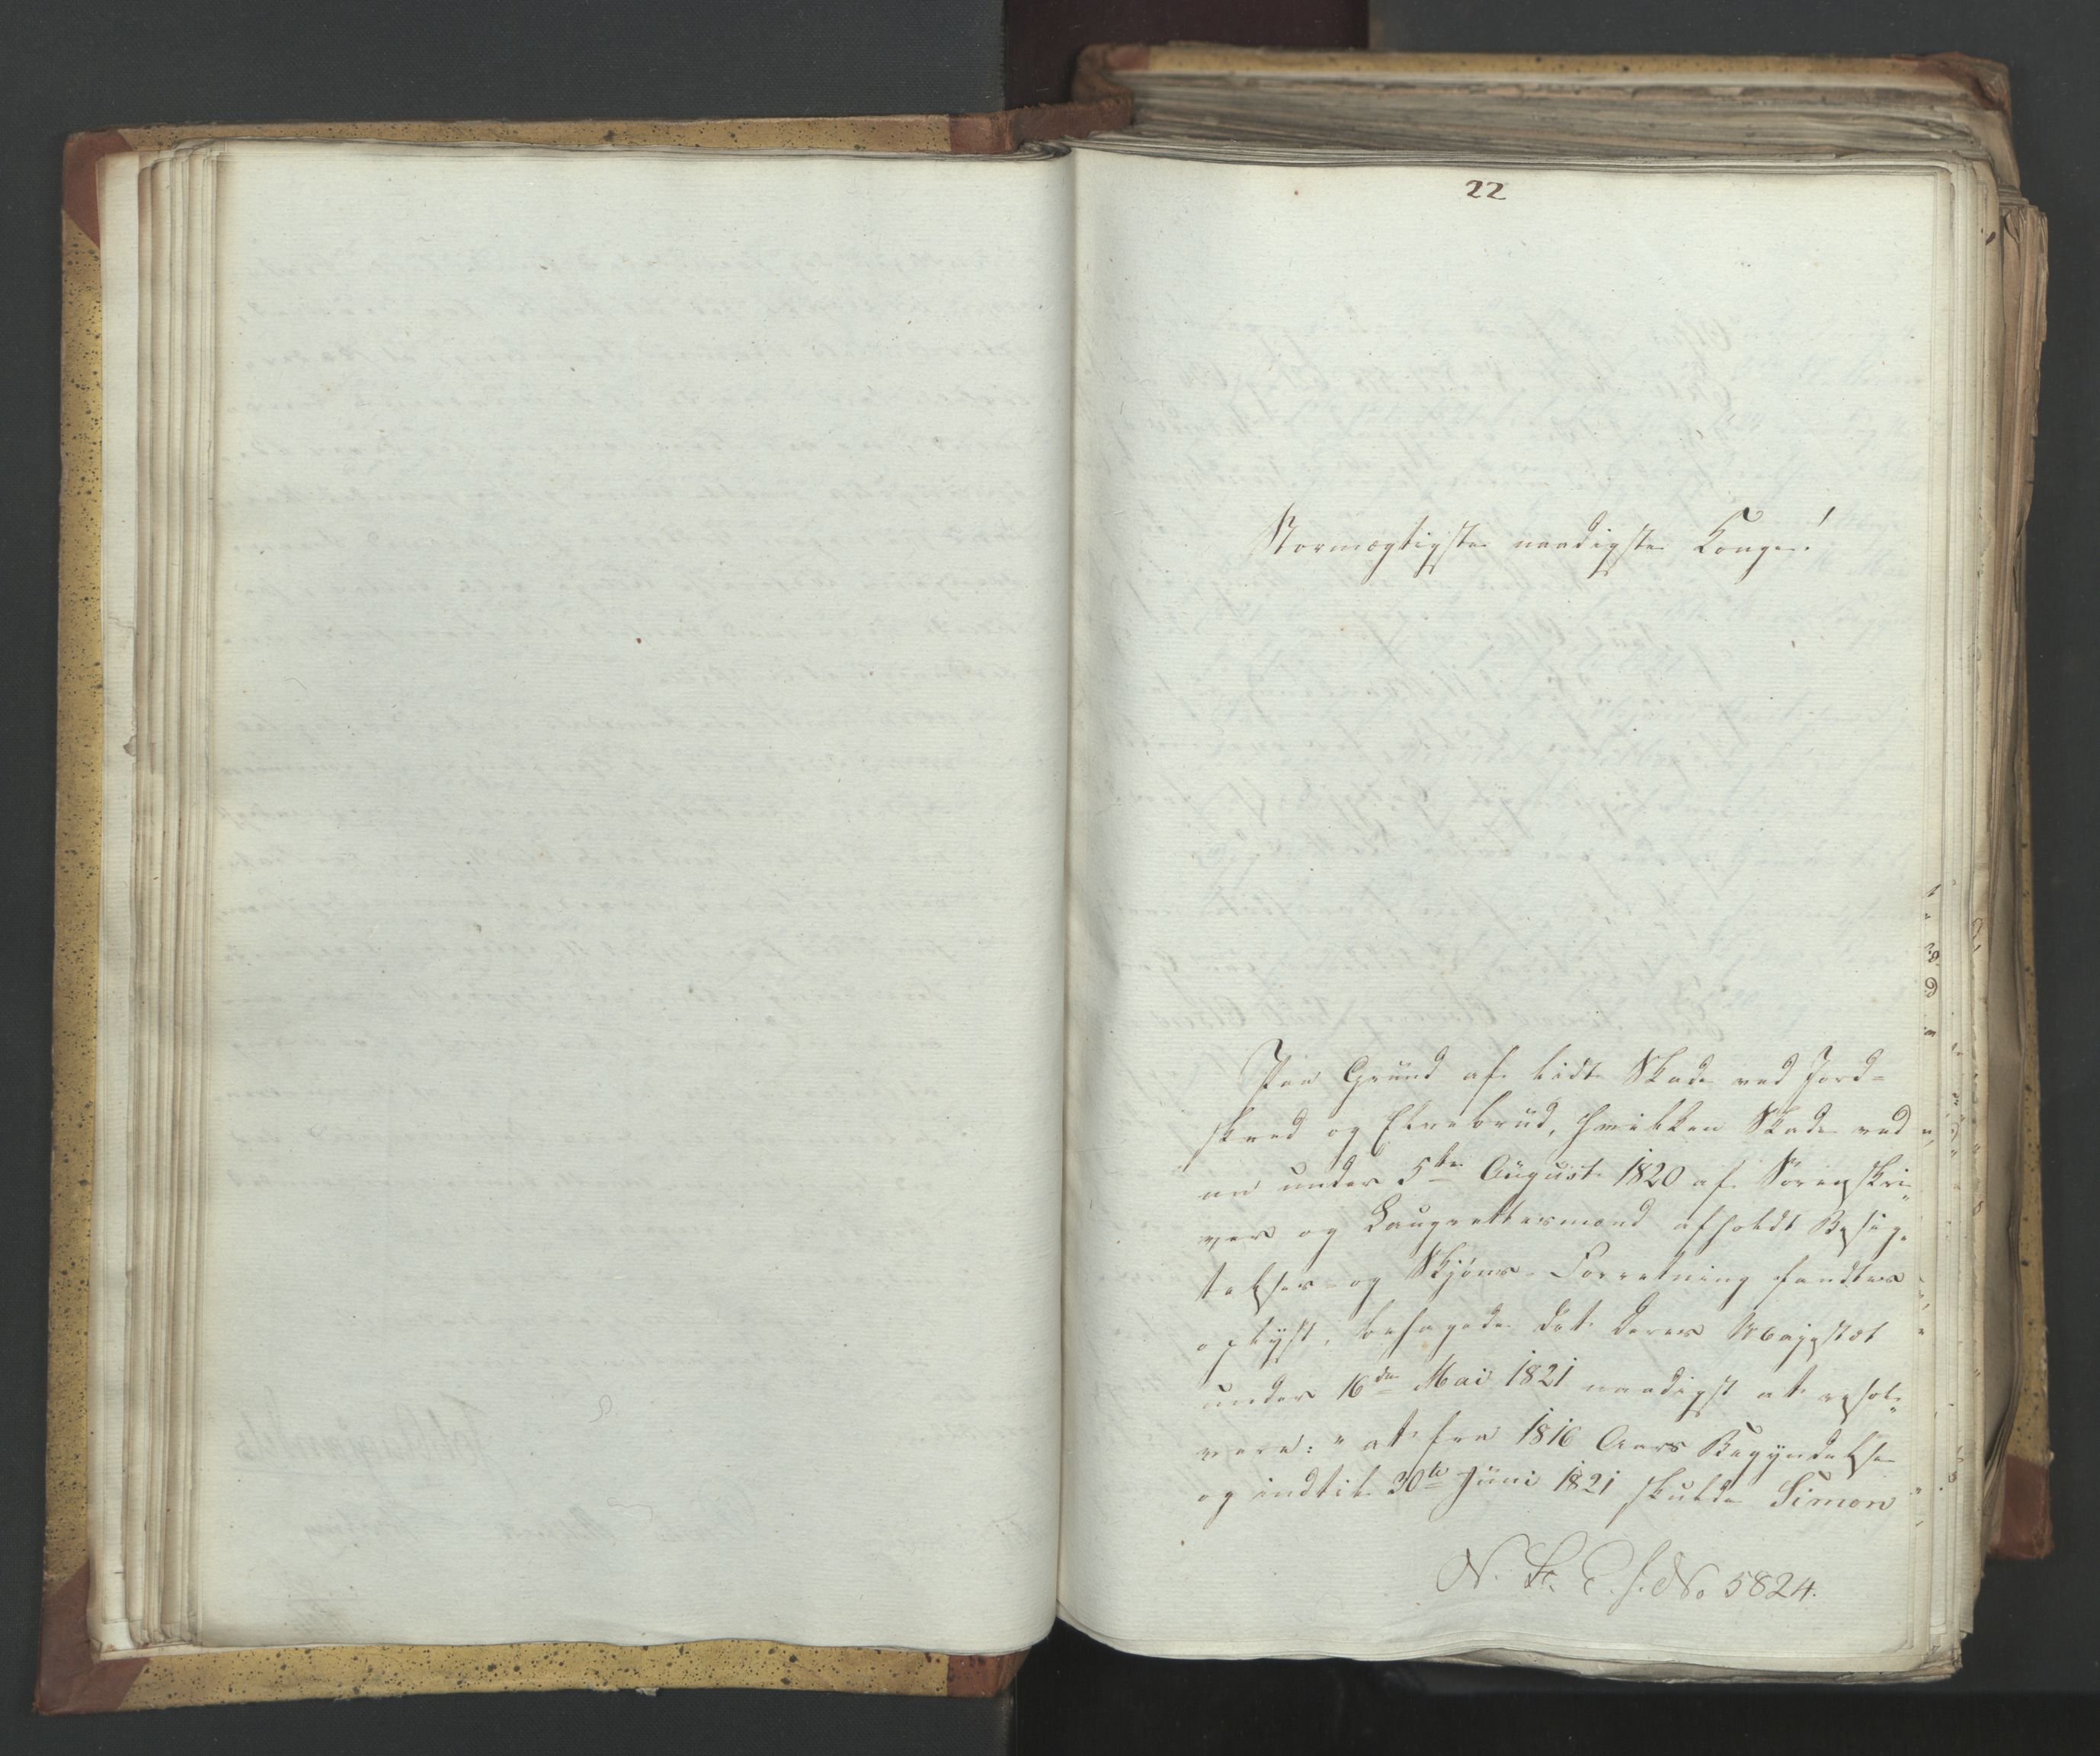 22
Stormægtigste naadigste Konge!
Paa Grund af lidt Skade ved Jord=
skred og Elvebrud, hvilken Skade ved
en under 5te August 1820 af Sorenskri=
ver og Laugrettesmænd afholdt Besig=
telses- og Skjøns-Forretning fandtes
oplyst, behagede det Deres Majestæt
under 16de Mai 1821 naadigst at resol=
vere: "at fra 1816 Aars Begyndelse
og indtil 30te Juni 1821 skulde Simon
No 5824.